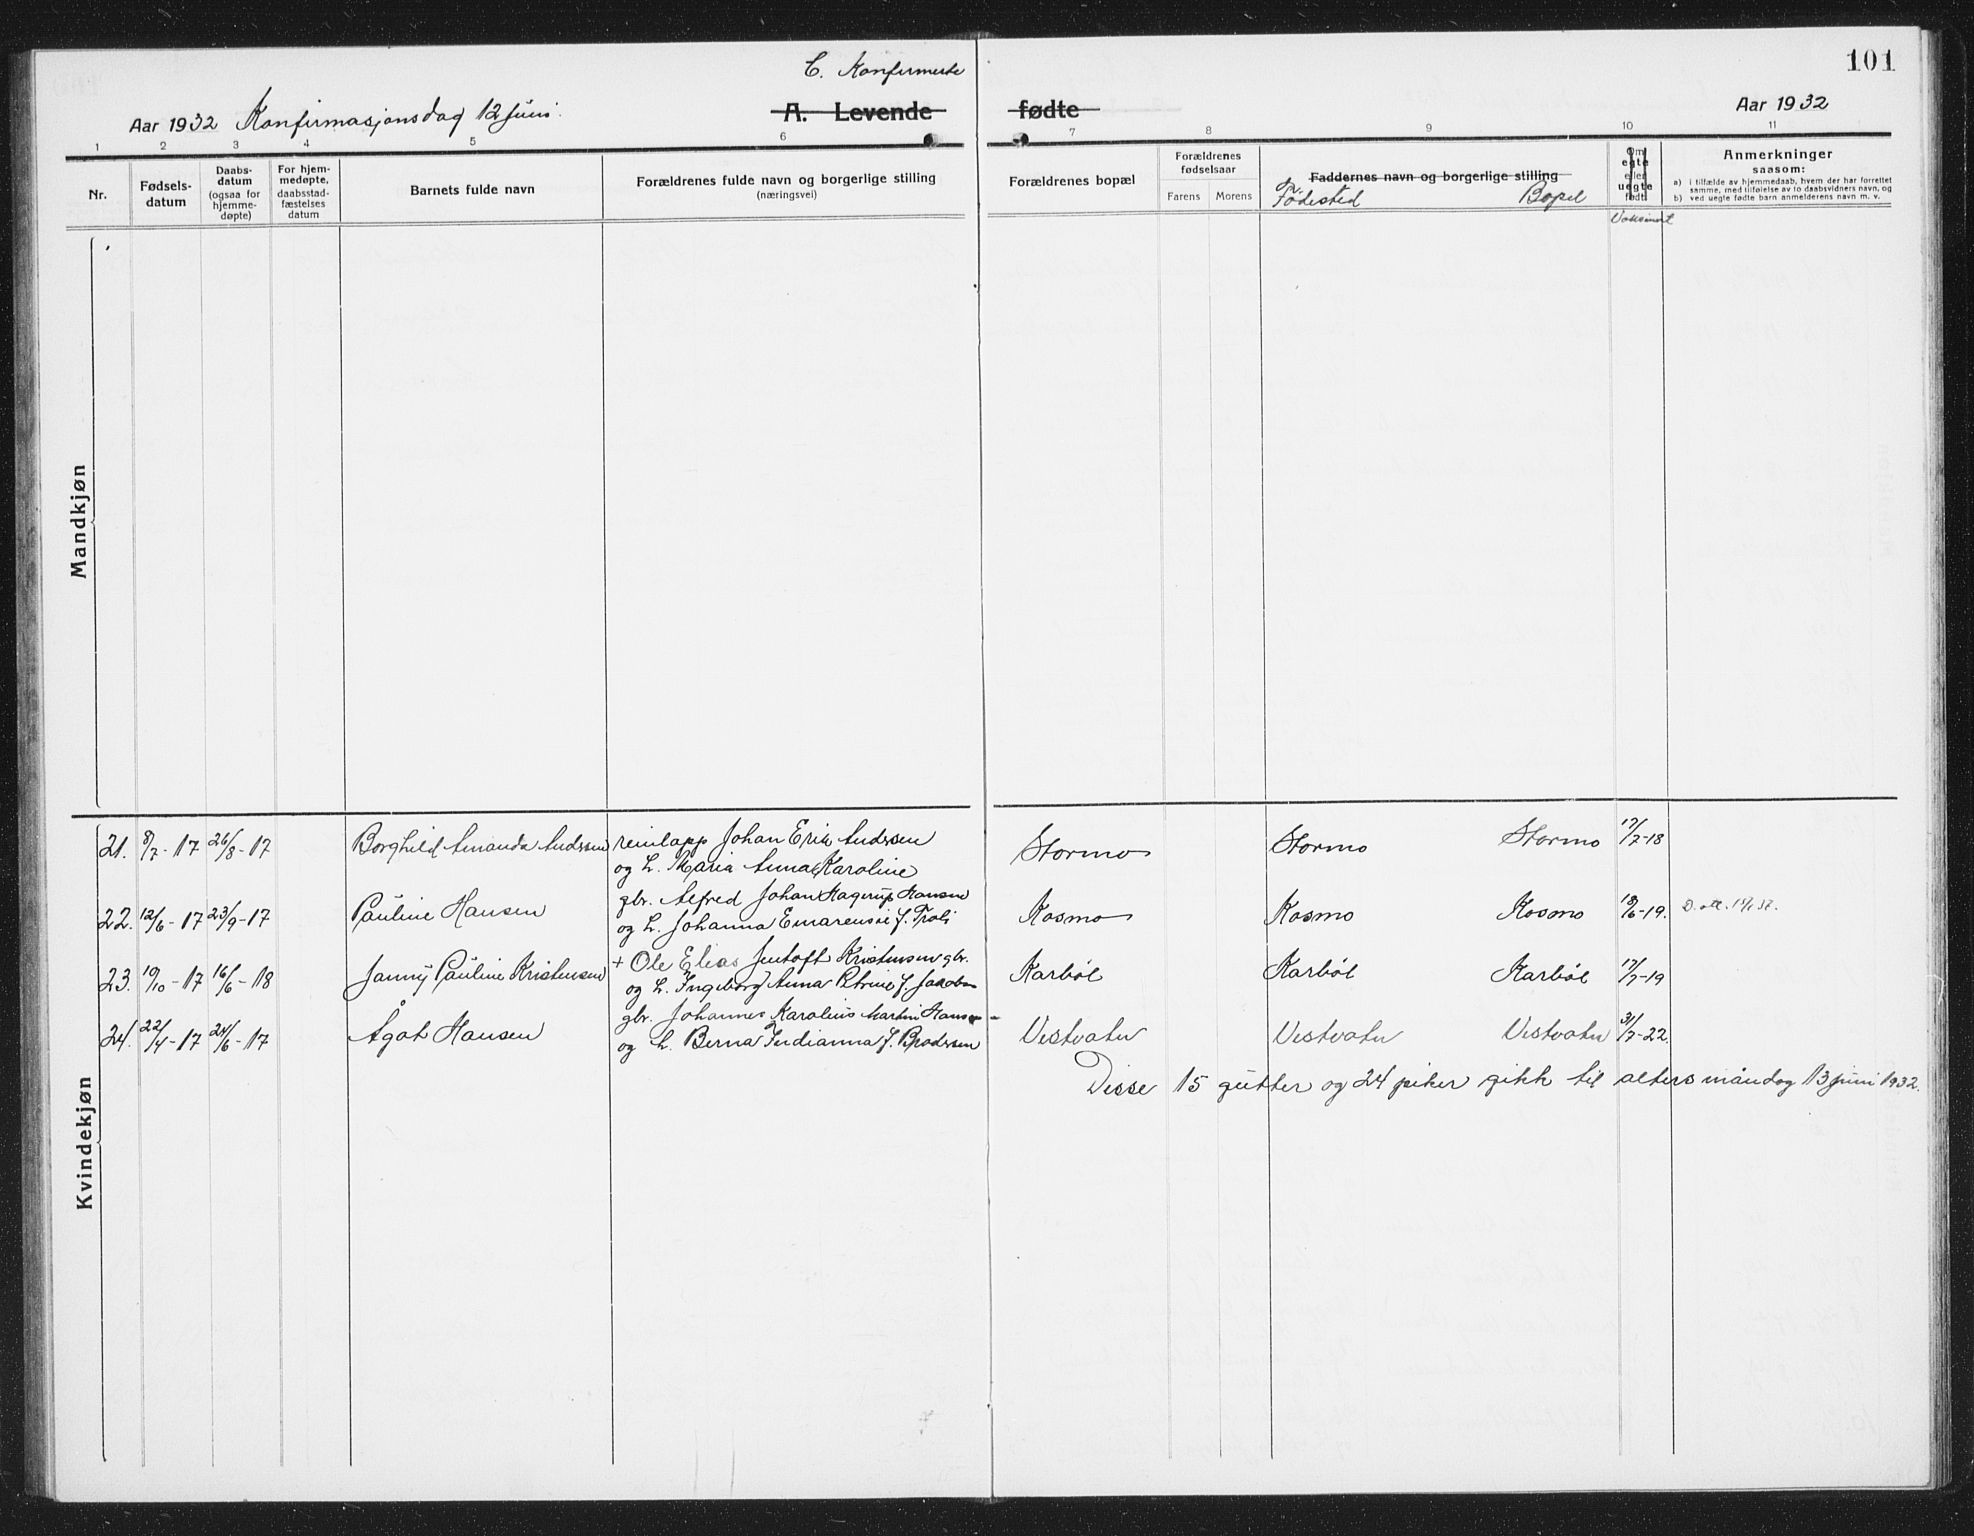 C. Konfirmerte
101
Aar 1932 Konfirmasjonsdag 12 juni.
A. Levende fødte
Aar 1932
1 2 3 4 5 6 7 8 9 10 11
Nr.
Fødsels-
datum
Daabs-
datum
(ogsaa for
hjemme-
døpte)
For hjem-
medøpte,
daabsstad-
fæstelses
datum
Barnets fulde navn
Forældrenes fulde navn og borgerlige stilling
(næringsvei)
Forældrenes bopæl
Forældrenes
fødselsaar
Farens Morens
Faddernes navn og borgerlige stilling
Fødested Bopel
Om
egte
eller
uegte
født.
Vaksinert
Anmerkninger
saasom:
a) i tilfælde av hjemmedaab, hvem der har forrettet
samme, med tilføielse av to daabsvidners navn, og
b) ved uegte fødte barn anmelderens navn m. v.
Mandkjøn
Kvindekjøn
21. 8/7-17 26/8-17 Borghild Amanda Andssen reinlapp Johan Erik Andssen Stormo Stormo Stormo 17/7-18
og h. Maria Anna Karoline
22. 12/6-17 23/9-17 Pauline Hansen gbr. Alfred Johan Hagerup Hansen Kosmo Kosmo Kosmo 18/6-19.
og h. Johanna Emarensie f. Troli
23. 19/10-17 16/6-18 Janny Pauline Kristensen + Ole Elias Jentoft Kristensen gbr. Karbøl Karbøl Karbøl 17/7-19
og h. Ingeborg Anna Petrine f. Jakobsen
24. 22/4-17 24/6-17 Ågot Hansen gbr. Johannes Karolius Martin Hansen Vestvatn Vestvatn Vestvatn 31/7-22.
og h. Berna Ferdianna f. Brodssen
Disse 15 gutter og 24 piker gikk til alters måndag 13 juni 1932.